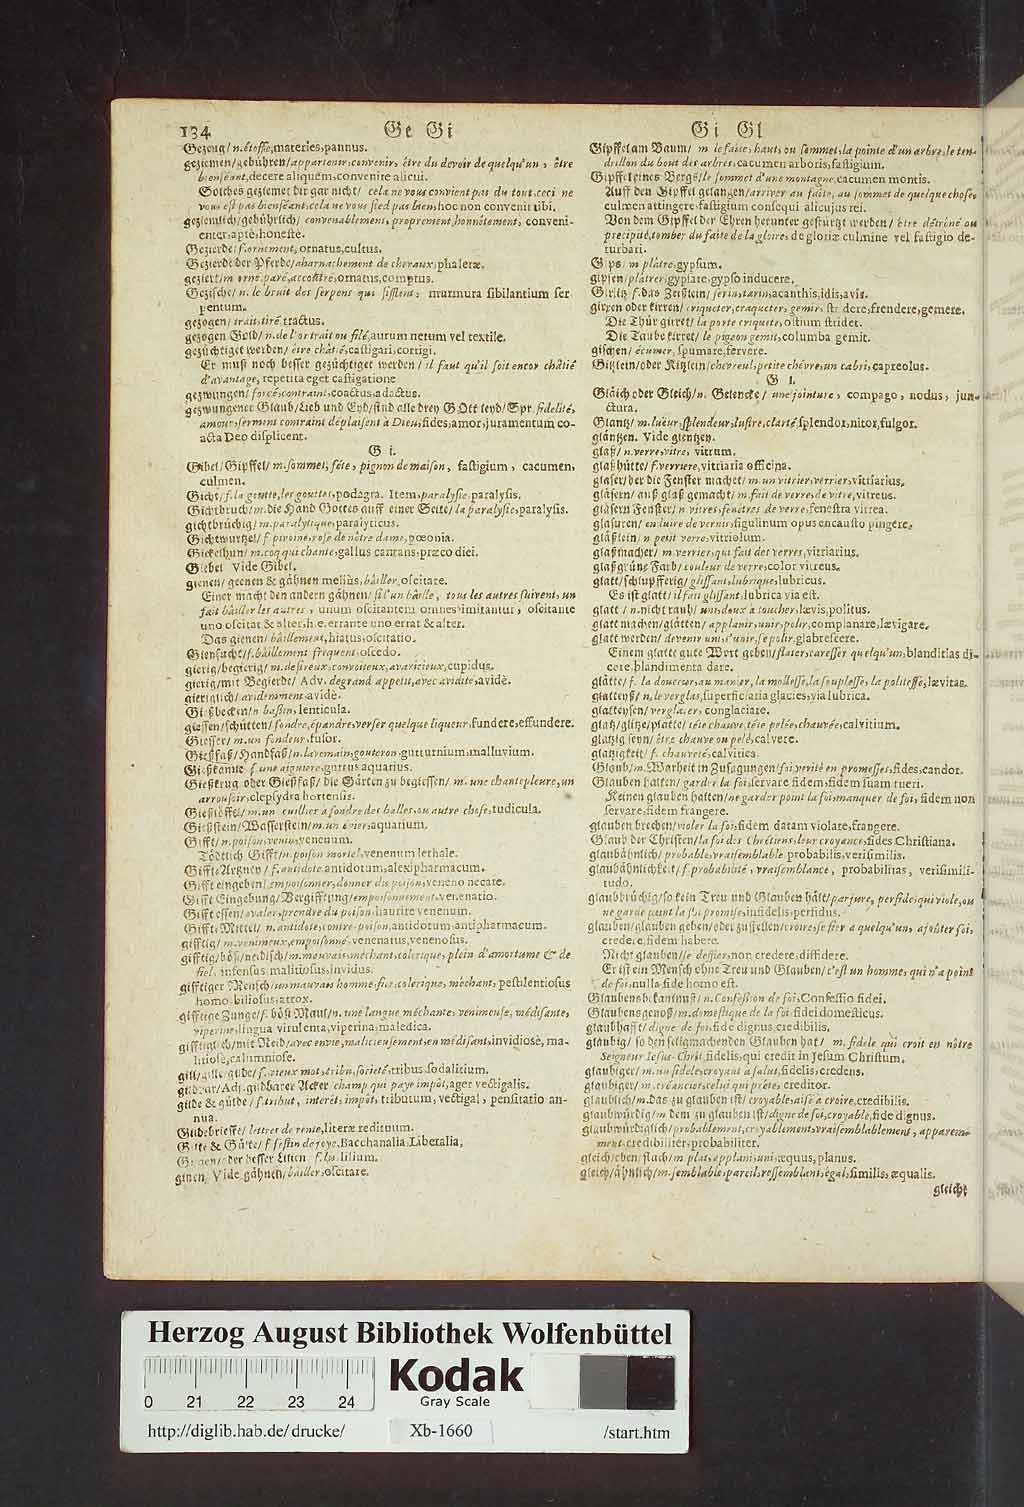 134 Ge Gi
Gezeug/ n. étoffe, materies, pannus.
geziemen/gebühren/ appartenir, convenir, être du devoir de quelqu'un, être
bienséant, decere aliquem, convenire alicui.
Solches geziemet dir gar nicht/ cela ne vous convient pas du tout, ceci ne
vous est pas bienséant, cela ne vous sied pas bien, hoc non convenit tibi.
geziemlich/gebührlich/ convenablement, proprement, honnêtement, conveni-
enter, aptè, honestè.
Gezierde/ f. ornement, ornatus, cultus.
Gezierde der Pferde/ aharnachement de chevaux, phaleræ.
geziert/ m orné, paré, accostré, ornatus, comptus.
Gezische/ n. le bruit des serpens qui sifflent, murmura sibilantium ser
pentum.
gezogen/ trait, tiré, tractus.
gezogen Gold/ n. de l'or trait ou filé, aurum netum vel textile.
gezüchtiget werden/ être châtié, castigari, corrigi.
Er muß noch besser gezüchtiget werden/ il faut qu'il soit encor châtié
d'avantage, repetita eget castigatione
gezwungen/ forcé, contraint, coactus, adactus.
gezwungener Glaub/Lieb und Eyd/sind alle drey GOtt leyd/Spr. fidelité,
amour, serment contraint déplaisent à Dieu, fides, amor, juramentum co-
acta Deo displicent.
G i.
Gibel/Gipffel/ m. sommet, féte, pignon de maison, fastigium, cacumen,
culmen.
Gicht/ f. la goutte, les gouttes, podagra. Item, paralysie, paralysis.
Gichtbruch/ m. die Hand Gottes auff einer Seite/ la paralysie, paralysis.
gichtbrüchig/ m. paralytique, paralyticus.
Gichtwurtzel/ f. pivoine, rose de nôtre dame, pœonia.
Gickelhun/ m. coq qui chante, gallus cantans, præco diei.
Giebel Vide Gibel.
gienen/ geenen & gähnen melius, bâiller, oscitare.
Einer macht den andern gähnen/ si l'un bâille, tous les autres suivent, un
fait bâiller les autres, unum oscitantem omnes imitantur, oscitante
uno oscitat & alter, h. e. errante uno errat & alter.
Das gienen/ bâillement, hiatus, oscitatio.
Giensucht/ f. bâillement frequent, oscedo.
gierig/begierig/ m. desireux, convoiteux, avaricieux, cupidus.
gierig/mit Begierde/ Adv. de grand appetit, avec avidité, avidè.
gieriglich/ avidemment, avidè.
Gießbecken/ n bassin, lenticula.
giessen/schütten/ fondre, épandre, verser quelque liqueur, fundere, effundere.
Giesser/ m. un fondeur, fusor.
Gießfaß/Handfaß/ n. lavemain, gouteron, gutturnium, malluvium.
Gießkante f. une aiguiere, guttus aquarius.
Gießkrug oder Gießfaß/ die Gärten zu begiessen/ m. une chantepleure, un
arrousoir, clepsydra hortensis.
Gießlöffel/ m. un cuillier à fondre des balles, ou autre chose, tudicula.
Gießstein/Wasserstein/ m. un évier, aquarium.
Gifft/ n. poison, venin, venenum.
Tödtlich Gifft/ n. poison mortel, venenum lethale.
Giffte Artzney/ f. antidote antidotum, alexipharmacum.
Gifft eingeben/ empoisonner, donner du poison, veneno necare.
Gifft Eingebung/Vergifftung/ empoisonnement, venenatio.
Gifft essen/ avaler, prendre du poison, haurire venenum.
Gifft-Mittel/ n. antidote, contre-poison, antidotum antipharmacum.
gifftig/ m. venimeux, empoisonné, venenatus, venenosus.
gifftig/böß/neidisch/ m. mauvais, méchant, colerique, plein d'amertume & de
fiel, infensus malitiosus, invidus.
gifftiger Mensch/ un mauvais homme, fier, colerique, méchant, pestilentiosus
homo, biliosus, atrox.
gifftige Zunge/ f. böß Maul/ n. une langue méchante, venimeuse, médisante,
viperine, lingua virulenta, viperina, maledica.
gifftiglich/mit Neid/ avec envie, malicieusement, en médisant, invidiosè, ma-
litiosè, calumniose.
gill/gille gülde/ f. vieux mot, tribu, societé, tribus sodalitium.
Adj. güldbarer Acker champ qui paye impôt, ager vectigalis.
gilde & gülde/ f. tribut, interêt, impôt, tributum, vectigal, pensitatio an-
nua.
Gildebrieffe/ lettres de rente, literæ redituum.
& Gülte/ f. festin de joye, Bacchanalia, Liberalia.
oder besser Lilien. f. lis, lilium.
ginen, Vide gähnen/ bâiller, oscitare.
Gi Gl
Gipffel am Baum/ m le faîte, haut, ou sommet, la pointe d'un arbre, le ten-
drillon du bout des arbres, cacumen arboris, fastigium.
Gipffel eines Bergs/ le sommet d'une montagne, cacumen montis.
Auff den Gipffel gelangen/ arriver au faîte, au sommet de quelque chose,
culmen attingere, fastigium consequi alicujus rei.
Von dem Gipffel der Ehren herunter gestürtzt werden/ être détrôné ou
precipité, tomber du faîte de la gloire, de gloriæ culmine vel fastigio de-
turbari.
Gips/ m plâtre, gypsum.
gipsen/ plâtrer, gypsare, gypso inducere.
Girlitz f. das Zeißlein/ serin, tarin, acanthis, idis, avis.
girren oder kirren/ criqueter, craqueter, gemir, stridere, frendere, gemere.
Die Thür girret/ la porte criquete, ostium stridet.
Die Taube kirret/ le pigeon gemit, columba gemit.
gischen/ écumer, spumare, fervere.
Gitzlein/oder Kitzlein/ chevreul, petite chévre, un cabri, capreolus.
G l.
Gläich oder Gleich/ n. Gelencke/ une jointure, compago, nodus, jun-
ctura.
Glantz/ m. lueur, splendeur, lustre, clarté splendor, nitor, fulgor.
gläntzen. Vide glentzen.
glaß/ n. verre, vitre, vitrum.
glaßhütte/ f. verriere, vitriaria officina.
glaser/der die Fenster machet/ m. un vitrier, verrier, vitriarius.
gläsern/ auß glaß gemacht/ m. fait de verre, de vitre, vitreus.
gläsern Fenster/ n vitres, fenêtres de verre, fenestra vitrea.
glasuren/ enduire de vernis, figulinum opus encausto pingere.
gläßlein/ n petit verre, vitriolum.
glaßmacher/ m verrier, qui fait des verres, vitriarius.
glaßgrüne Farb/ couleur de verre, color vitreus.
glatt/schlupfferig/ glissant, lubrique, lubricus.
Es ist glatt/ il fait glissant, lubrica via est.
glatt / n. nicht rauh/ uni, doux à toucher, lævis, politus.
glatt machen/glätten/ applanir, unir, polir, complanare, lævigare.
glatt werden/ devenir uni, s'unir, se polir, glabrescere.
Einem glatte gute Wort geben/ flater, caresser quelqu'un, blanditias di-
cere, blandimenta dare.
glätte/ f. la douceur, au manier, la mollesse, la souplesse, la politesse, lævitas.
glatteyß/ n, le verglas, superficiaria glacies, via lubrica.
glatteysen/ verglacer, conglaciare.
glatz/glitze/platte/ tête chauve, tête pelée, chauvée, calvitium.
glatzig seyn/ être chauve ou pelé, calvere.
glatzigkeit/ f. chauveté, calvities.
Glaub/ m. Warheit in Zusagungen/ foi, verité en promesses, fides, candor.
Glauben halten/ garder la foi, servare fidem, fidem suam tueri.
Keinen glauben halten/ ne garder point la foi, manquer de foi, fidem non
servare, fidem frangere.
glauben brechen/ violer la foi, fidem datam violare, frangere.
Glaub der Christen/ la foi des Chrétiens, leur croyance, fides Christiana.
glaubähnlich/ probable, vraisemblable probabilis, verisimilis.
glaubähnlichkeit/ f. probabilité, vraisemblance, probabilitas, verisimili-
tudo.
glaubbrüchig/so kein Treu und Glauben hält/ parjure, perfide, qui viole, ou
ne garde point la foi promise, infidelis, perfidus.
glauben/glauben geben/oder zustellen/ croire, se fier à quelqu'un, ajoûter foi,
credere, fidem habere.
Nicht glauben/ se deffier, non credere, diffidere.
Er ist ein Mensch ohne Treu und Glauben/ c'est un homme, qui n'a point
de foi, nulla fide homo est.
Glaubensbekäntnuß/ n. Confession de foi, Confessio fidei.
Glaubensgenoß/ m. domestique de la foi, fidei domesticus.
glaubhafft/ digne de foi, fide dignus, credibilis.
glaubig/ so den seligmachenden Glauben hat/ m. fidele qui croit en nôtre
Seigneur Jesus-Christ, fidelis, qui credit in Jesum Christum.
glaubiger/ m. un fidele, croyant à salut, fidelis, credens.
glaubiger/ m. créancier, celui qui prête, creditor.
glaublich/ m. das zu glauben ist/ croyable, aisé à croire, credibilis.
glaubwürdig/ m dem zu glauben ist/ digne de foi, croyable, fide dignus.
glaubwürdiglich/ probablement, croyablement, vraisemblablement, apparem-
ment, credibiliter, probabiliter.
gleich/eben/flach/ m plat, applani, uni, æquus, planus.
gleich/ähnlich/ m. semblable, pareil, ressemblant, égal, similis, æqualis.
gleiche
Herzog August Bibliothek Wolfenbüttel
Kodak
Gray Scale
0 21 22 23 24
http://diglib.hab.de/drucke/ Xb-1660 /start.htm